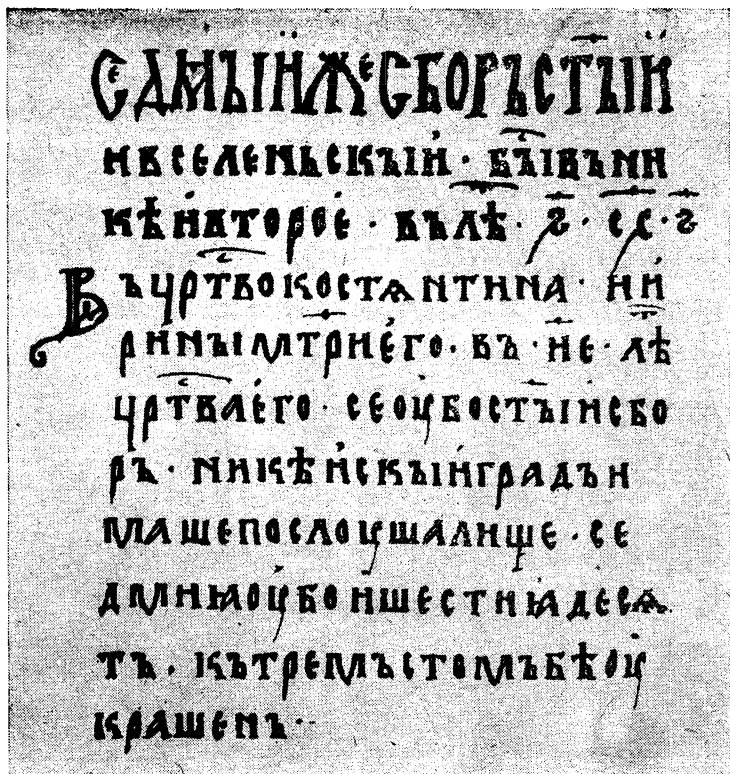 СЕДМЪІИЖЕСБОРЪСТ꙽ЪІИ
ИВСЕЛЕНЬСКЪІИ · БЪІ҇ВЪНИ
КѢИВТОРОЕ · ВЪЛѢ · ҂ѕ҃ · с҃с҃ · ѕ҃
ВЪЦРТ҇ВОКОСТѦНТИНА · ИИ
РИНЪІМТ҃РИЕГО · ВЪ · И҃Е · ЛѢ
ЦРТ҇ВАЕГО · СЕОУБОСТ҃ЪІИСБО
РЪ · НИКѢИСКЪІИГРАДЪИ
МАШЕПОСЛОУШАЛИЩЕ · СЕ
ДМИЮОУБОИШЕСТИЮДЕСѦ
ТЪ · КЪТРЕМЪСТОМЪБѢОУ
КРАШЕНЪ ··